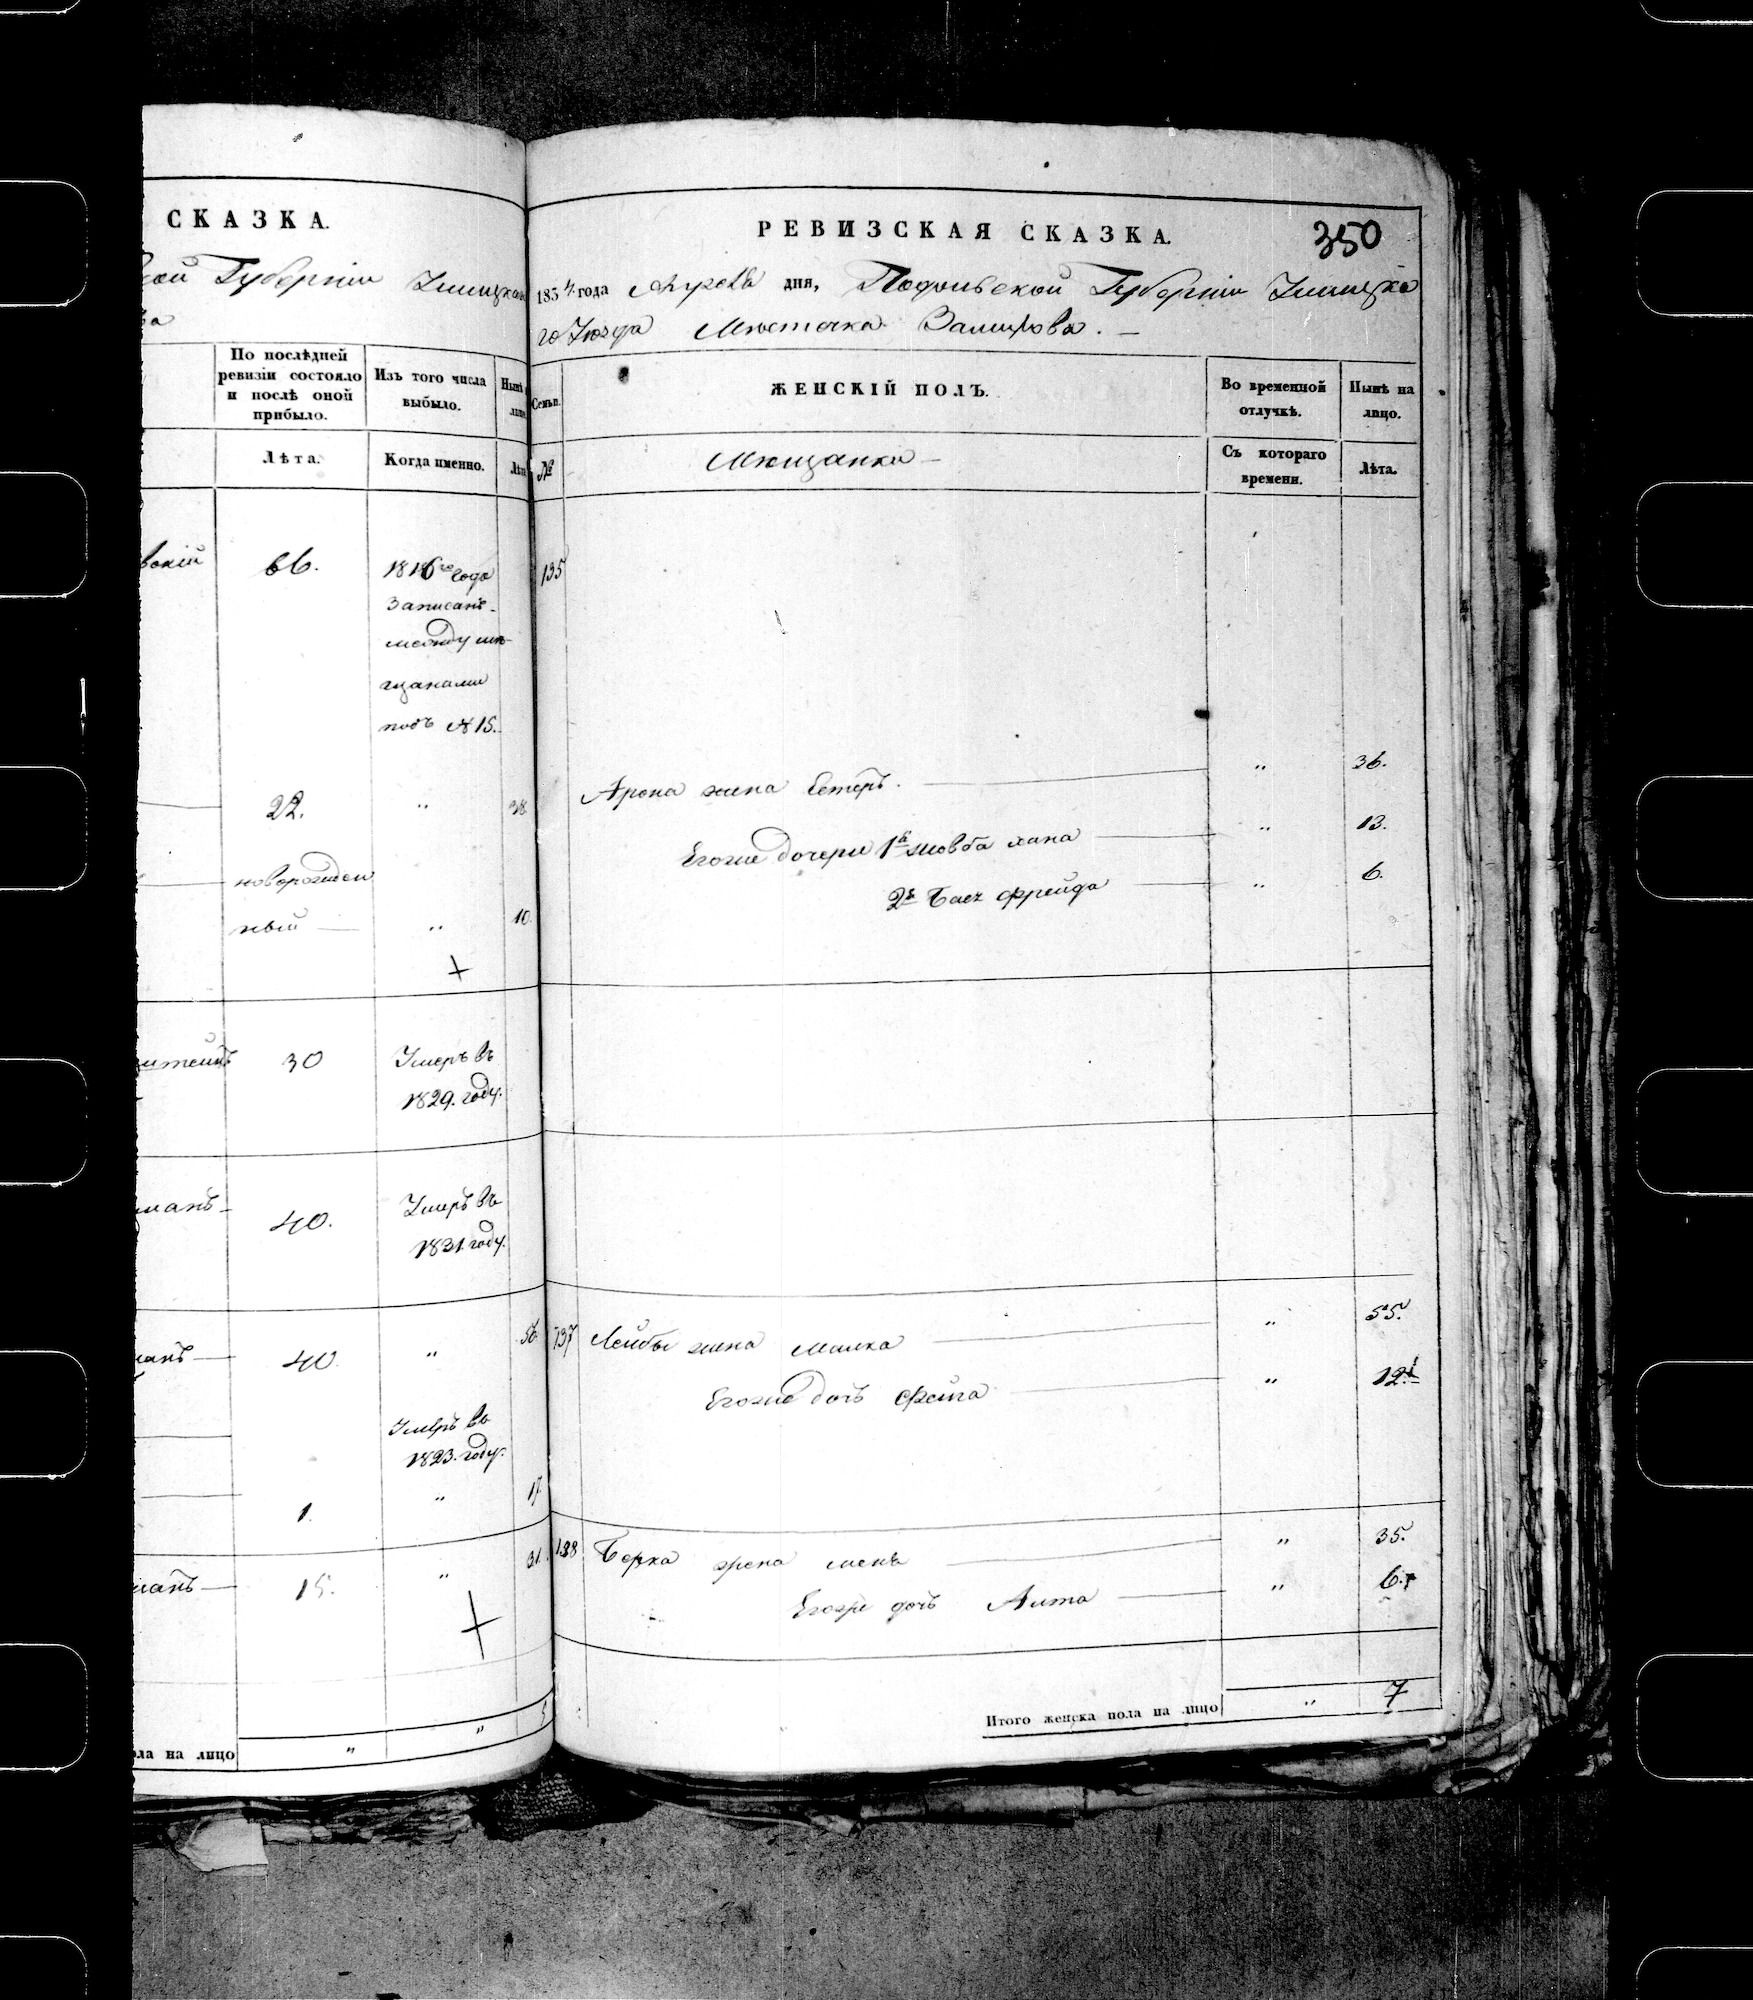 СКАЗКА.
Губерніи Ушицкаго
По послѣдней ревизіи состояло и послѣ оной прибыло.
Изъ того числа выбыло.
Нынѣ
Лѣта.
Когда именно.
Лѣта
66.
1816го года
Записанъ
между мѣ-
щанами
подъ № 15.
22. " 38
новорожден
ный " 10.
30 Умеръ въ
1829. году.
манъ 40. Умеръ въ
1831. году.
манъ 40 " 56
Умеръ въ
1823. году.
1. " 17.
манъ 15. " 31.
"
ла на лицо "
РЕВИЗСКАЯ СКАЗКА.
350
1834 года Апрѣля дня, Подольской Губерніи Ушицка
го Уѣзда Мѣстечка
Семьи.
ЖЕНСКІЙ ПОЛЪ.
Во временной отлучкѣ.
Нынѣ на лицо.
№
Мѣщанки
Съ котораго времени.
Лѣта.
135
Арона жена Естеръ. " 36.
Егоже дочери 1я Шовба хана " 13.
2я Бася Фрейда " 6.
137 Лейбы жена Малка " 55.
Егоже дочь Фейга " 12
138 Берка жена " 35.
Егоже дочь Алта " 6.
Итого женска пола на лицо " 7